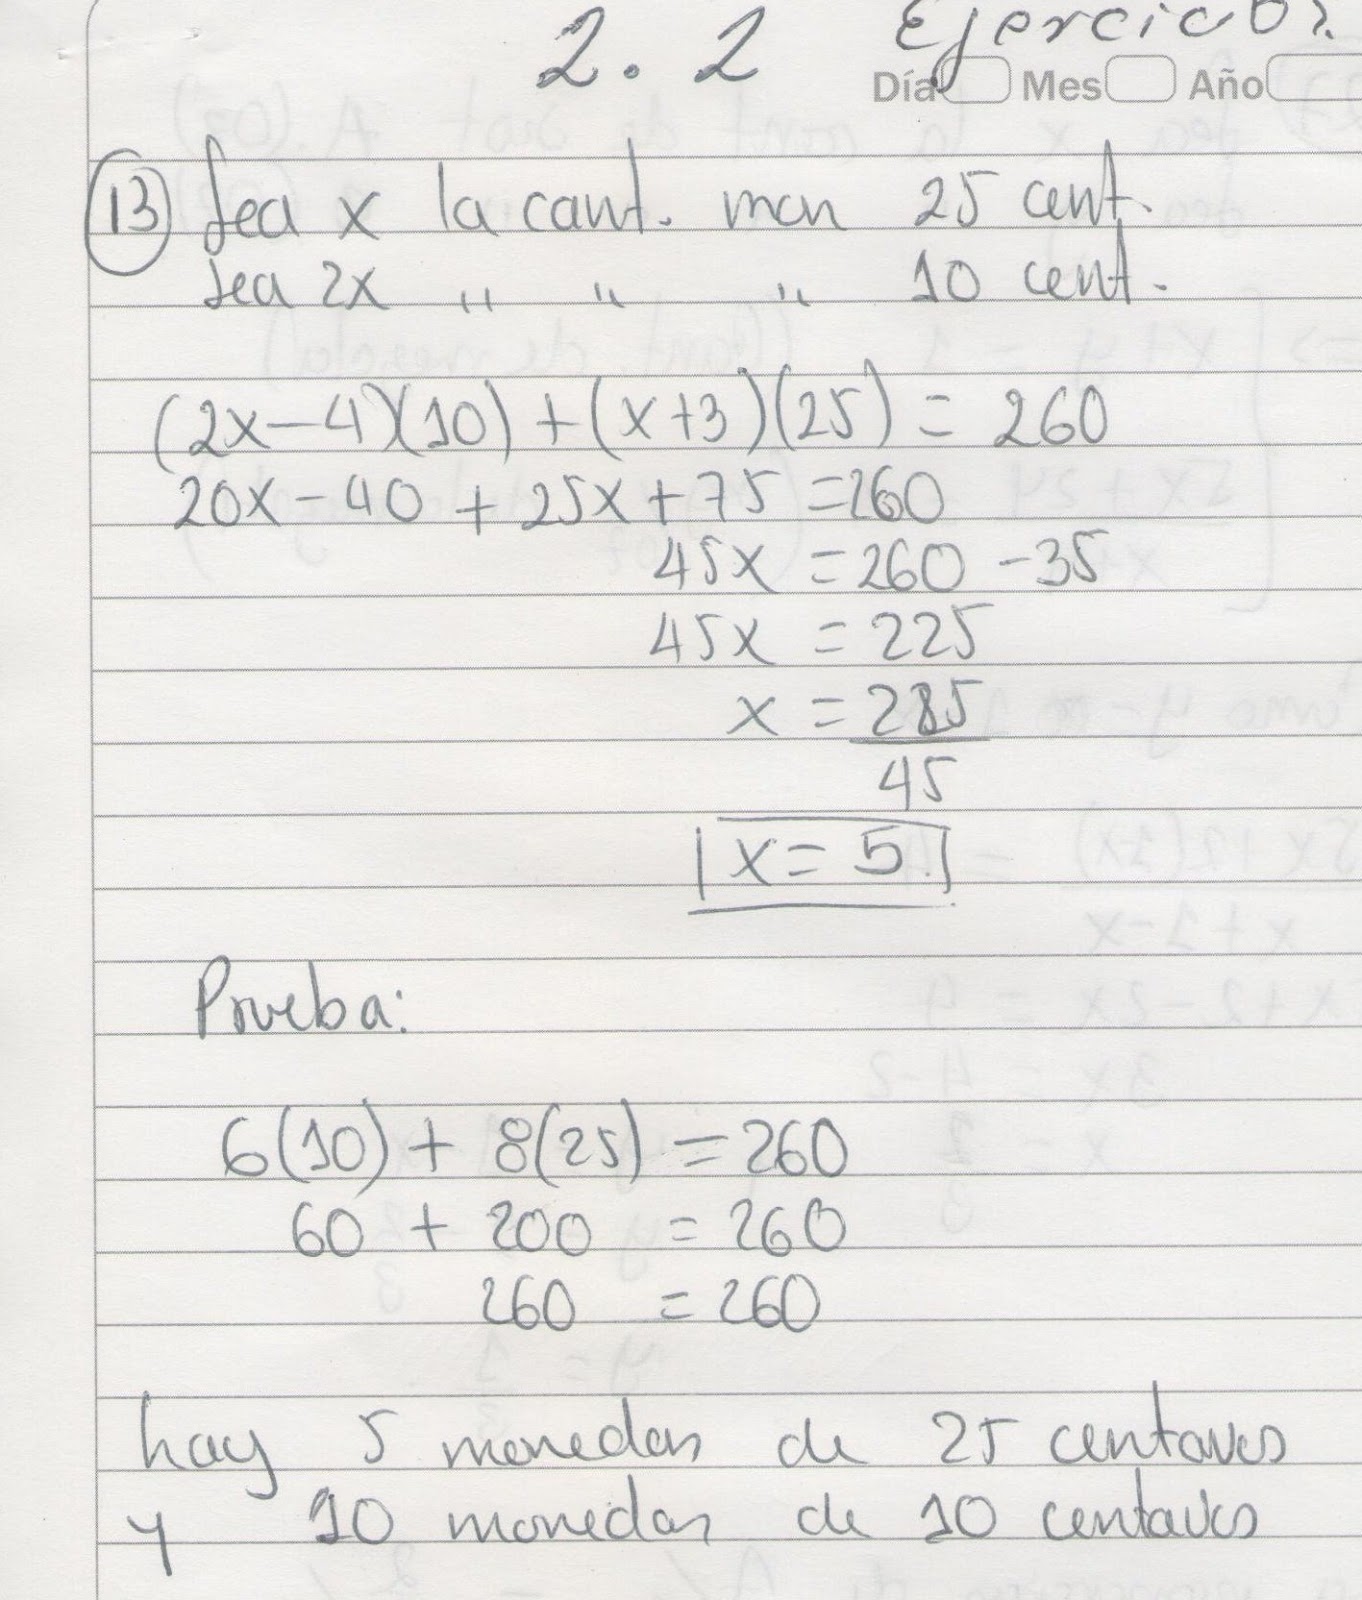 2.2 Ejercicios
Día Mes Año
13 Sea x la cant. mon 25 cent.
Sea 2x " " " 10 cent.
(2x-4)(10) + (x+3)(25) = 260
20x - 40 + 25x + 75 = 260
45x = 260 - 35
45x = 225
x = 225
45
x = 5
Prueba:
6(10) + 8(25) = 260
60 + 200 = 260
260 = 260
hay 5 monedas de 25 centavos
y 10 monedas de 10 centavos